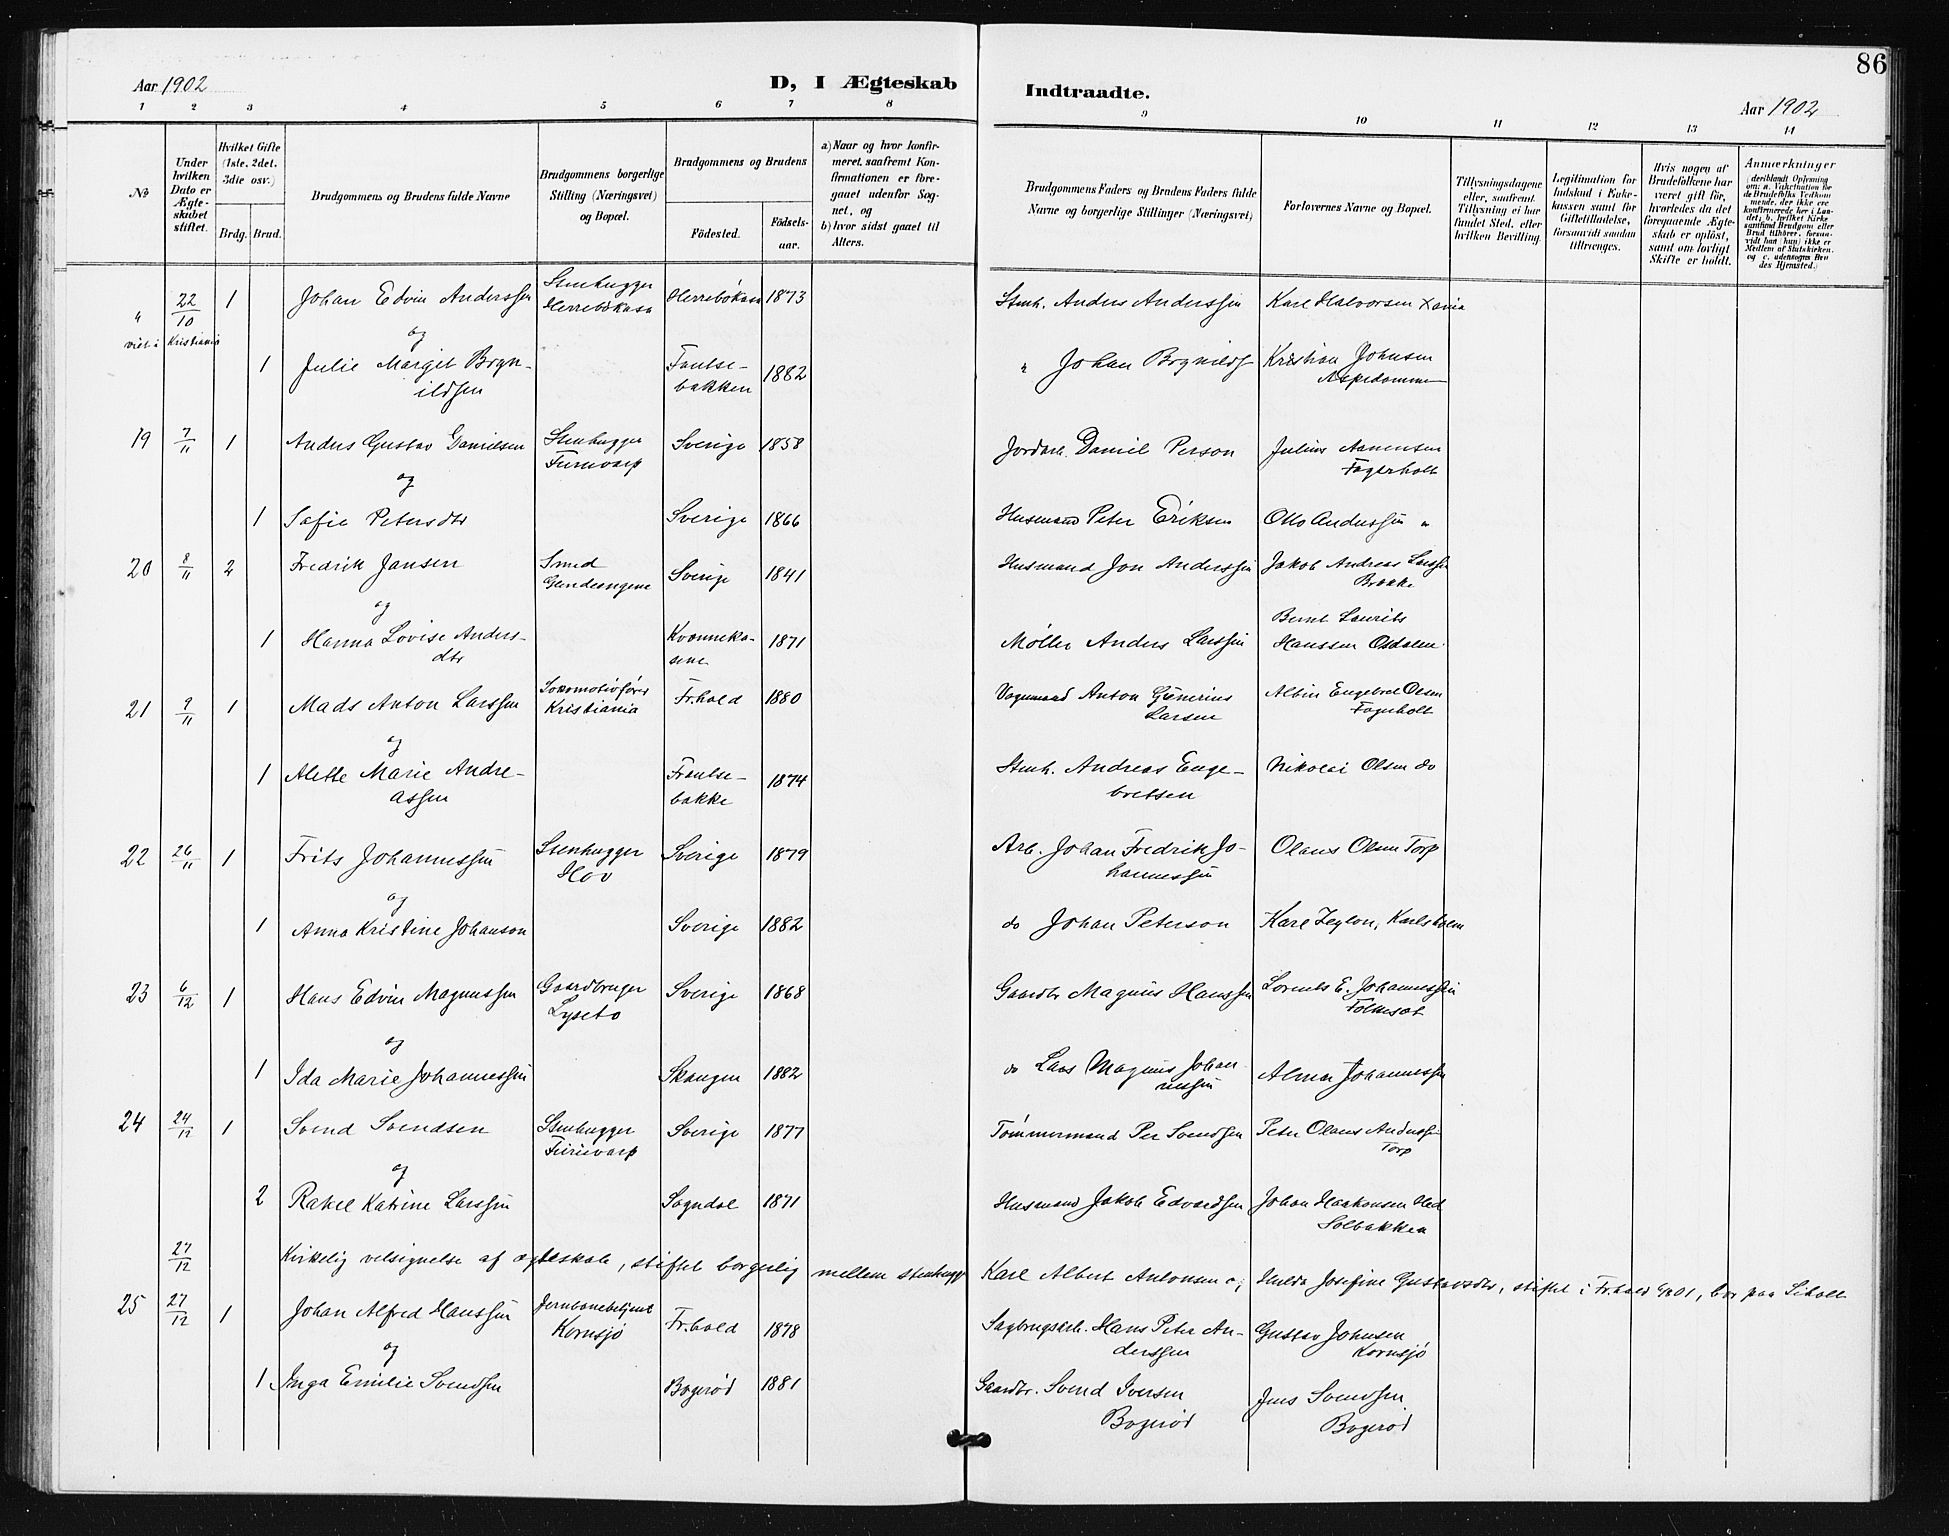 86
Aar 1902
D, I Ægteskab
Indtraadte.
Aar 1902
1 2 3 4 5 6 7 8
9 10 11 12 13 14
No
Under hvilken Dato er Ægteskabet stiftet.
Hvilket Gifte (1ste, 2det, 3die osv.)
Brdg. Brud.
Brudgommens og Brudens fulde Navne
Brudgommens borgerlige Stilling (Næringsvei) og Bopæl.
Brudgommens og Brudens
Fødested.
Fødselsaar.
a) Naar og hvor konfirmeret, saafremt Konfirmationen er foregaaet udenfor Sognet, og
b) hvor sidst gaaet til Alters.
Brudgommens Faders og Brudens Faders fulde Navne og borgerlige Stillinger (Næringsvei)
Forlovernes Navne og Bopæl.
Tillysningsdagene eller, saafremt Tillysning ei har fundet Sted, efter hvilken Bevilling.
Legitimation for Indskud i Enkekassen samt for Giftetilladelse, forsaavidt saadan tiltrænges.
Hvis nogen af Brudefolkene har været gift før, hvorledes da det foregaaende Ægteskab er opløst, samt om lovligt Skifte er holdt.
Anmærkninger
" 22/10 1 Johan Edvin Anderssen Stenhugger Herrebøkasa Herrebøkasa 1873 Stenh. Anders Anderssen Karl Halvorsen Xania
viet i Kristiania
og
1 Julie Margit Brynildsen Fantebakken 1882 " Johan Brynilds Kristian Johnsen Aspedammen
19 7/11 1 Anders Gustav Danielsen Stenhugger Sverige 1858 Jordarb. Daniel Person Julius Fagerholt
og
1 Sofie Petersdtr Sverige 1866 Husmand Peter Eriksen Otto Anderssen "
20 8/11 2 Fredrik Jansen Smed Sverige 1841 Husmand Jon Anderssen Jakob Andreas Larssen Brække
og
1 Hanna Lovise Andersdtr 1871 Møller Anders Larssen Bernt Laurits Hanssen
21 9/11 1 Mads Anton Larssen Lokomotivfører Kristiania Fr.hald 1880 Vognmand Anton Gunerius Larsen Albin Engebret Olsen Fagerholt
og
1 Alette Marie Andreassen 1874 Stenh. Andreas Engebretsen Nikolai Olsen do
22 26/11 1 Frits Johannessen Stenhugger Hov Sverige 1879 Arb. Johan Fredrik Johannessen Olaus Olsen Torp
og
1 Anna Kristine Johanson Sverige 1882 do Johan Peterson Karl Zeylon, Karlsholm
23 6/12 1 Hans Edvin Magnussen Gaardbruger Lyseto Sverige 1868 Gaardbr Magnus Hanssen Lorents E. Johannessen Folkesæt
og
1 Ida Marie Johannessen Skaugen 1882 do Lars Magnus Johannessen Johannessen
24 24/12 1 Svend Svendsen Stenhugger Sverige 1877 Tømmermand Per Svendsen Peter Olaus Anderss. Torp
og
2 Rakel Katrine Larssen Sogndal 1871 Husmand Jakob Edvardsen Johan Haakonsen Solbakken
27/12 Kirkelig velsignelse af ægteskab, stiftet borgerlig mellem stenhugg. Karl Albert Antonsen og Hulda Josefine Gustavsdtr, stiftet i Fr.hald 1901, bor paa
25 27/12 1 Johan Alfred Hanssen Jernbanebetjent Kornsjø Fr.hald 1878 Sagbrugsarb. Hans Peter Anderssen Gustav Johnsen Kornsjø
og
1 Inga Emilie Svendsen Bogerød 1881 Gaardbr. Svend Iversen Bogerød Jens Svendsen Bogerød